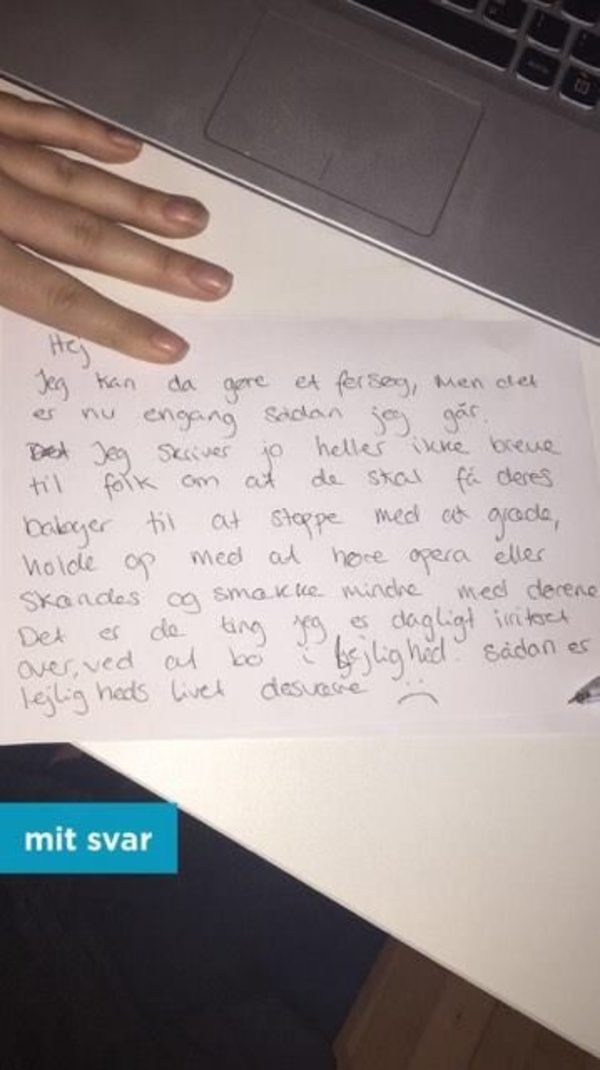 Hej
Jeg kan da gøre et forsøg, men det
er nu engang sådan jeg går.
Jeg skriver jo heller ikke breve
til folk om at de skal få deres
babyer til at stoppe med at græde,
holde op med at høre opera eller
skændes og smække mindre med dørene
Det er de ting jeg er dagligt irriteret
over, ved at bo i lejlighed. Sådan er
lejligheds livet desværre
mit svar